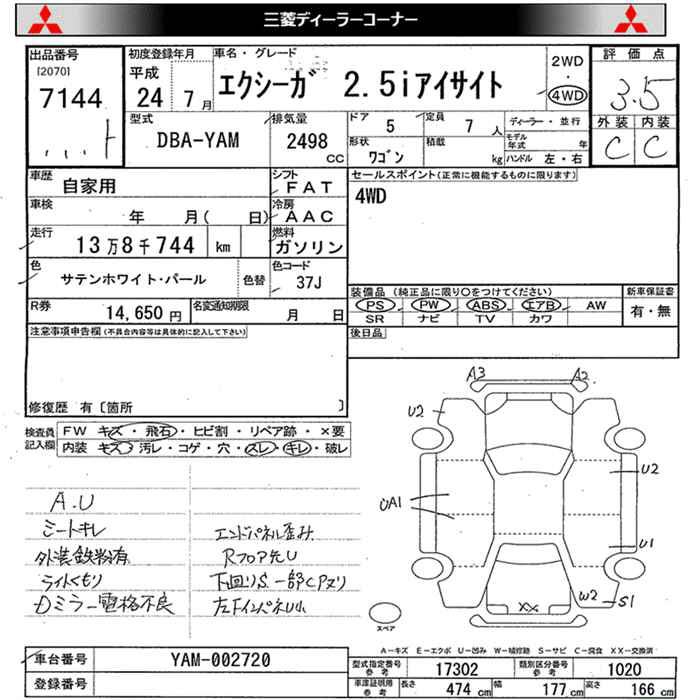 三菱ディーラーコーナー
出品番号
[2070]
7144
初度登録年月
平成
24 7月
車名・グレード
エクシーガ 2.5iアイサイト
2WD
・
4WD
評価点
3.5
外装 内装
C C
型式
DBA-YAM
排気量
2498
CC
ドア 5
定員 7人
ディーラー・並行
形状 ワゴン
積載 kg
モデル年式 年
ハンドル 左・右
車歴 自家用
シフト FAT
車検 年 月( 日)
冷房 AAC
走行 13万8千744 km
燃料 ガソリン
色 サテンホワイト・パール
色替
色コード 37J
R券 14,650円
名変通知期限 月 日
セールスポイント(正常に機能するものに限ります)
4WD
装備品 (純正品に限り○をつけてください)
新車保証書
PS PW ABS エアB AW
有・無
SR ナビ TV カワ
後日品
注意事項申告欄(不具合内容等は具体的に記入して下さい)
修復歴 有〔箇所 〕
検査員記入欄
FW キズ・飛石・ヒビ割・リペア跡・×要
内装 キズ・汚レ・コゲ・穴・スレ・キレ・破レ
A.U
シートキレ
外装鉄粉有
ライトくもり
Dミラー電格不良
エンドパネル歪み
Rフロア先U
下回りS 一部Cアリ
左FインパネU小
A3 A2
U2
U2
UA1
U1
W2 S1
XX
スペア
A-キズ E-エクボ U-凹み W-補修跡 S-サビ C-腐食 XX-交換済
車台番号 YAM-002720
登録番号
型式指定番号 参考 17302
類別区分番号 参考 1020
車庫証明用 参考
長さ 474cm
幅 177cm
高さ 166cm